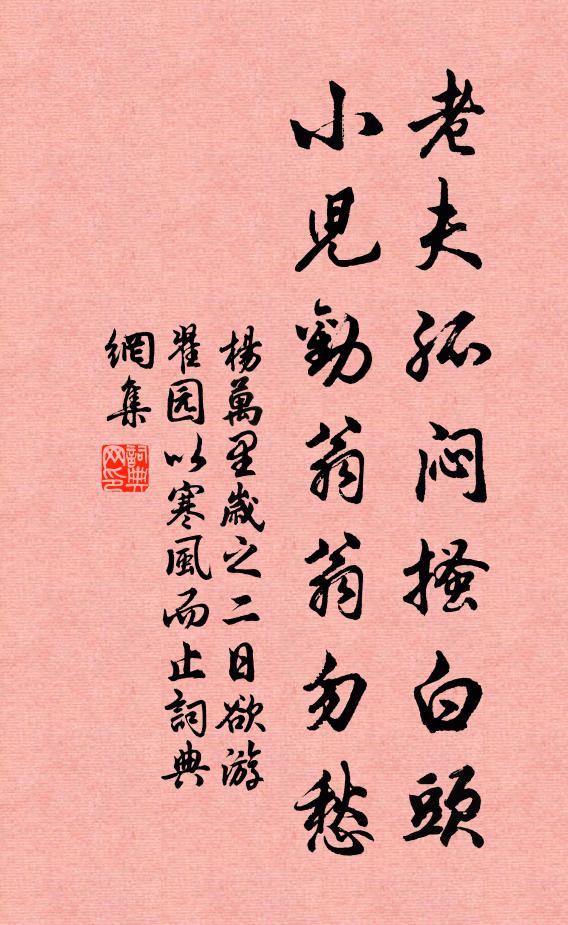 老夫孤闷搔白頭
小児勸翁翁勿愁
楊萬里歲之二日欲游
翟园以寒風而止詞典
網集
詞典
网印